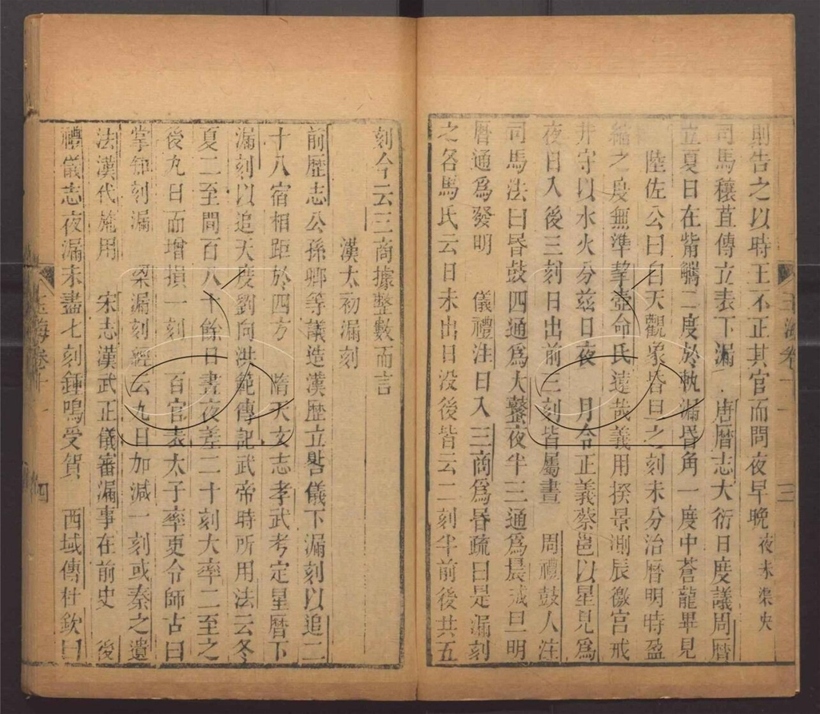 則告之以時王不正其官而問夜早晚夜未渠央
司馬穰苴傳立表下漏 唐曆志大衍日度議周曆
立夏日在觜觿二度於軌漏昏角一度中蒼龍畢見
陸佐公曰自天觀象昏旦之刻未分治曆明時盈
縮之度無準挈壺命氏遠哉義用揆景測辰徼宮戒
井守以水火分茲日夜 月令正義蔡邕以星見為
夜日入後三刻日出前三刻皆屬晝 周禮鼓人注
司馬法曰昏鼓四通為大鼜夜半三通為晨戒旦明
曆通為發明 儀禮注日入三商為昏疏曰是漏刻
之名馬氏云日未出日沒後皆云二刻半前後共五
玉海卷十一 三
刻今云三商據整數而言
漢太初漏刻
前歷志公孫卿等議造漢歷立晷儀下漏刻以追二
十八宿相距於四方 隋天文志孝武考定星曆下
漏刻以追天度劉向洪範傳記武帝時所用法云冬
夏二至間百八十餘日晝夜差二十刻大率二至之
後九日而增損一刻 百官表太子率更令師古曰
掌知刻漏 梁漏刻經云九日加減一刻或秦之遺
法漢代施用 宋志漢武正儀審漏事在前史 後
禮儀志夜漏未盡七刻鍾鳴受賀 西域傳杜欽曰
玉海卷十一 四